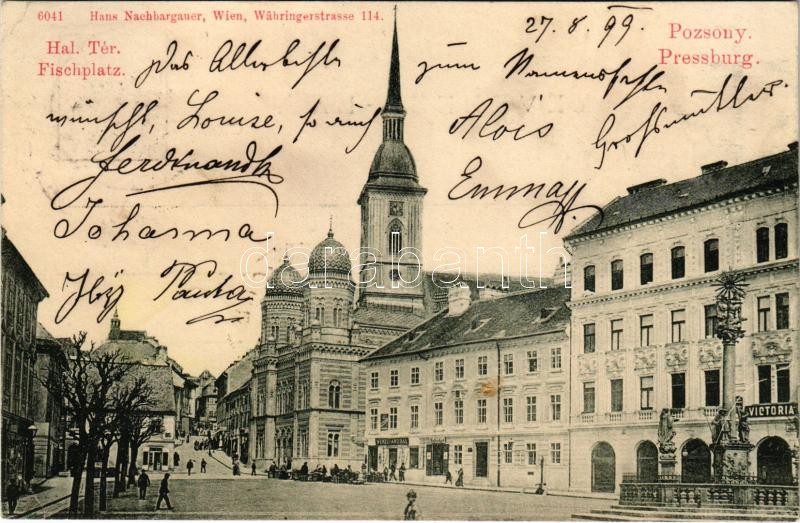 6041 Hans Nachbargauer, Wien, Währingerstrasse 114.
27. 8. 99.
Hal. Tér.
Fischplatz.
Pozsony.
Pressburg.
Das Allerbeste zum Namensfeste
wünscht, Louise, so auch Alois Großmutter.
Ferdinand
Emma
Johanna
darabanth
VICTORIA